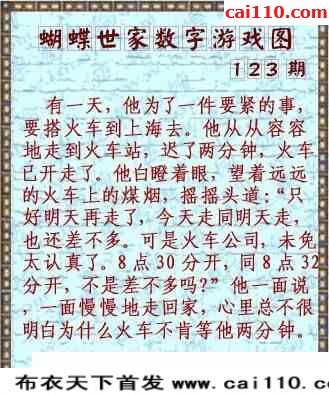 cai110.com
蝴蝶世家数字游戏图
123期
有一天，他为了一件要紧的事，
要搭火车到上海去。他从从容容
地走到火车站，迟了两分钟，火车
已开走了。他白瞪着眼，望着远远
的火车上的煤烟，摇摇头道：“只
好明天再走了，今天走同明天走，
也还差不多。可是火车公司，未免
太认真了。8点30分开，同8点32
分开，不是差不多吗？”他一面说，
一面慢慢地走回家，心里总不很
明白为什么火车不肯等他两分钟。
布衣天下首发 www.cai110.c